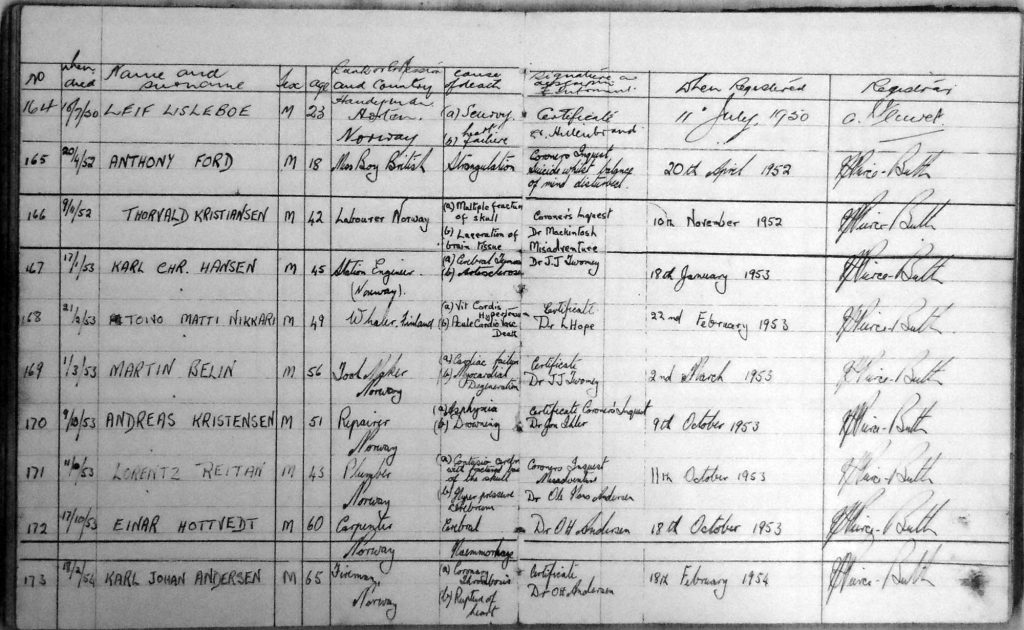 No when died Name and surname Sex age Rank or Profession and Country cause of death Signature When Registered Registrar
164 10/7/50 LEIF LISLEBOE M 23 Handyman Norway (a) Scurvy (b) heart failure Certificate 11th July, 1950
165 20/4/52 ANTHONY FORD M 18 Mess Boy British Strangulation Coroners Inquest Suicide whilst balance of mind disturbed. 20th April 1952 Pierce-Butler
166 9/11/52 THORVALD KRISTIANSEN M 42 Labourer Norway (a) Multiple fracture of skull (b) Laceration of brain tissue Coroner's Inquest Dr Mackintosh Misadventure 10th November 1952 Pierce-Butler
167 17/1/53 KARL CHR. HANSEN M 45 Station Engineer. (Norway). (a) Cerebral (b) Dr J.J Twomey 18th January 1953 Pierce-Butler
168 21/2/53 TOIVO MATTI NIKKARI M 49 Whaler Finland (a) Vit Cordis (b) Acute Cardiac Death Certificate Dr L Hope 22nd February 1953 Pierce-Butler
169 1/3/53 MARTIN BELIN M 56 Tool Maker Norway (a) Cardiac failure (b) Myocardial Degeneration Certificate Dr JJ Twomey 2nd March 1953 Pierce-Butler
170 9/10/53 ANDREAS KRISTENSEN M 51 Repairer Norway (a) Asphyxia (b) Drowning Certificate Coroner's Inquest Dr Jon 9th October 1953 Pierce-Butler
171 11/10/53 LORENTZ REITAN M 43 Plumber Norway (a) Contusion with fractured of the skull (b) Hyper pressure Cerebrum Coroners Inquest Misadventure Dr Ole Hans Andersen 11th October 1953 Pierce-Butler
172 17/10/53 EINAR HOTTVEDT M 60 Carpenter Norway Cerebral Haemmorhage Dr OH Andersen 18th October 1953 Pierce-Butler
173 18/2/54 KARL JOHAN ANDERSEN M 65 Fireman, Norway (a) Coronary Thrombosis (b) Rupture of heart Certificate Dr OH Andersen 18th February 1954 Pierce-Butler